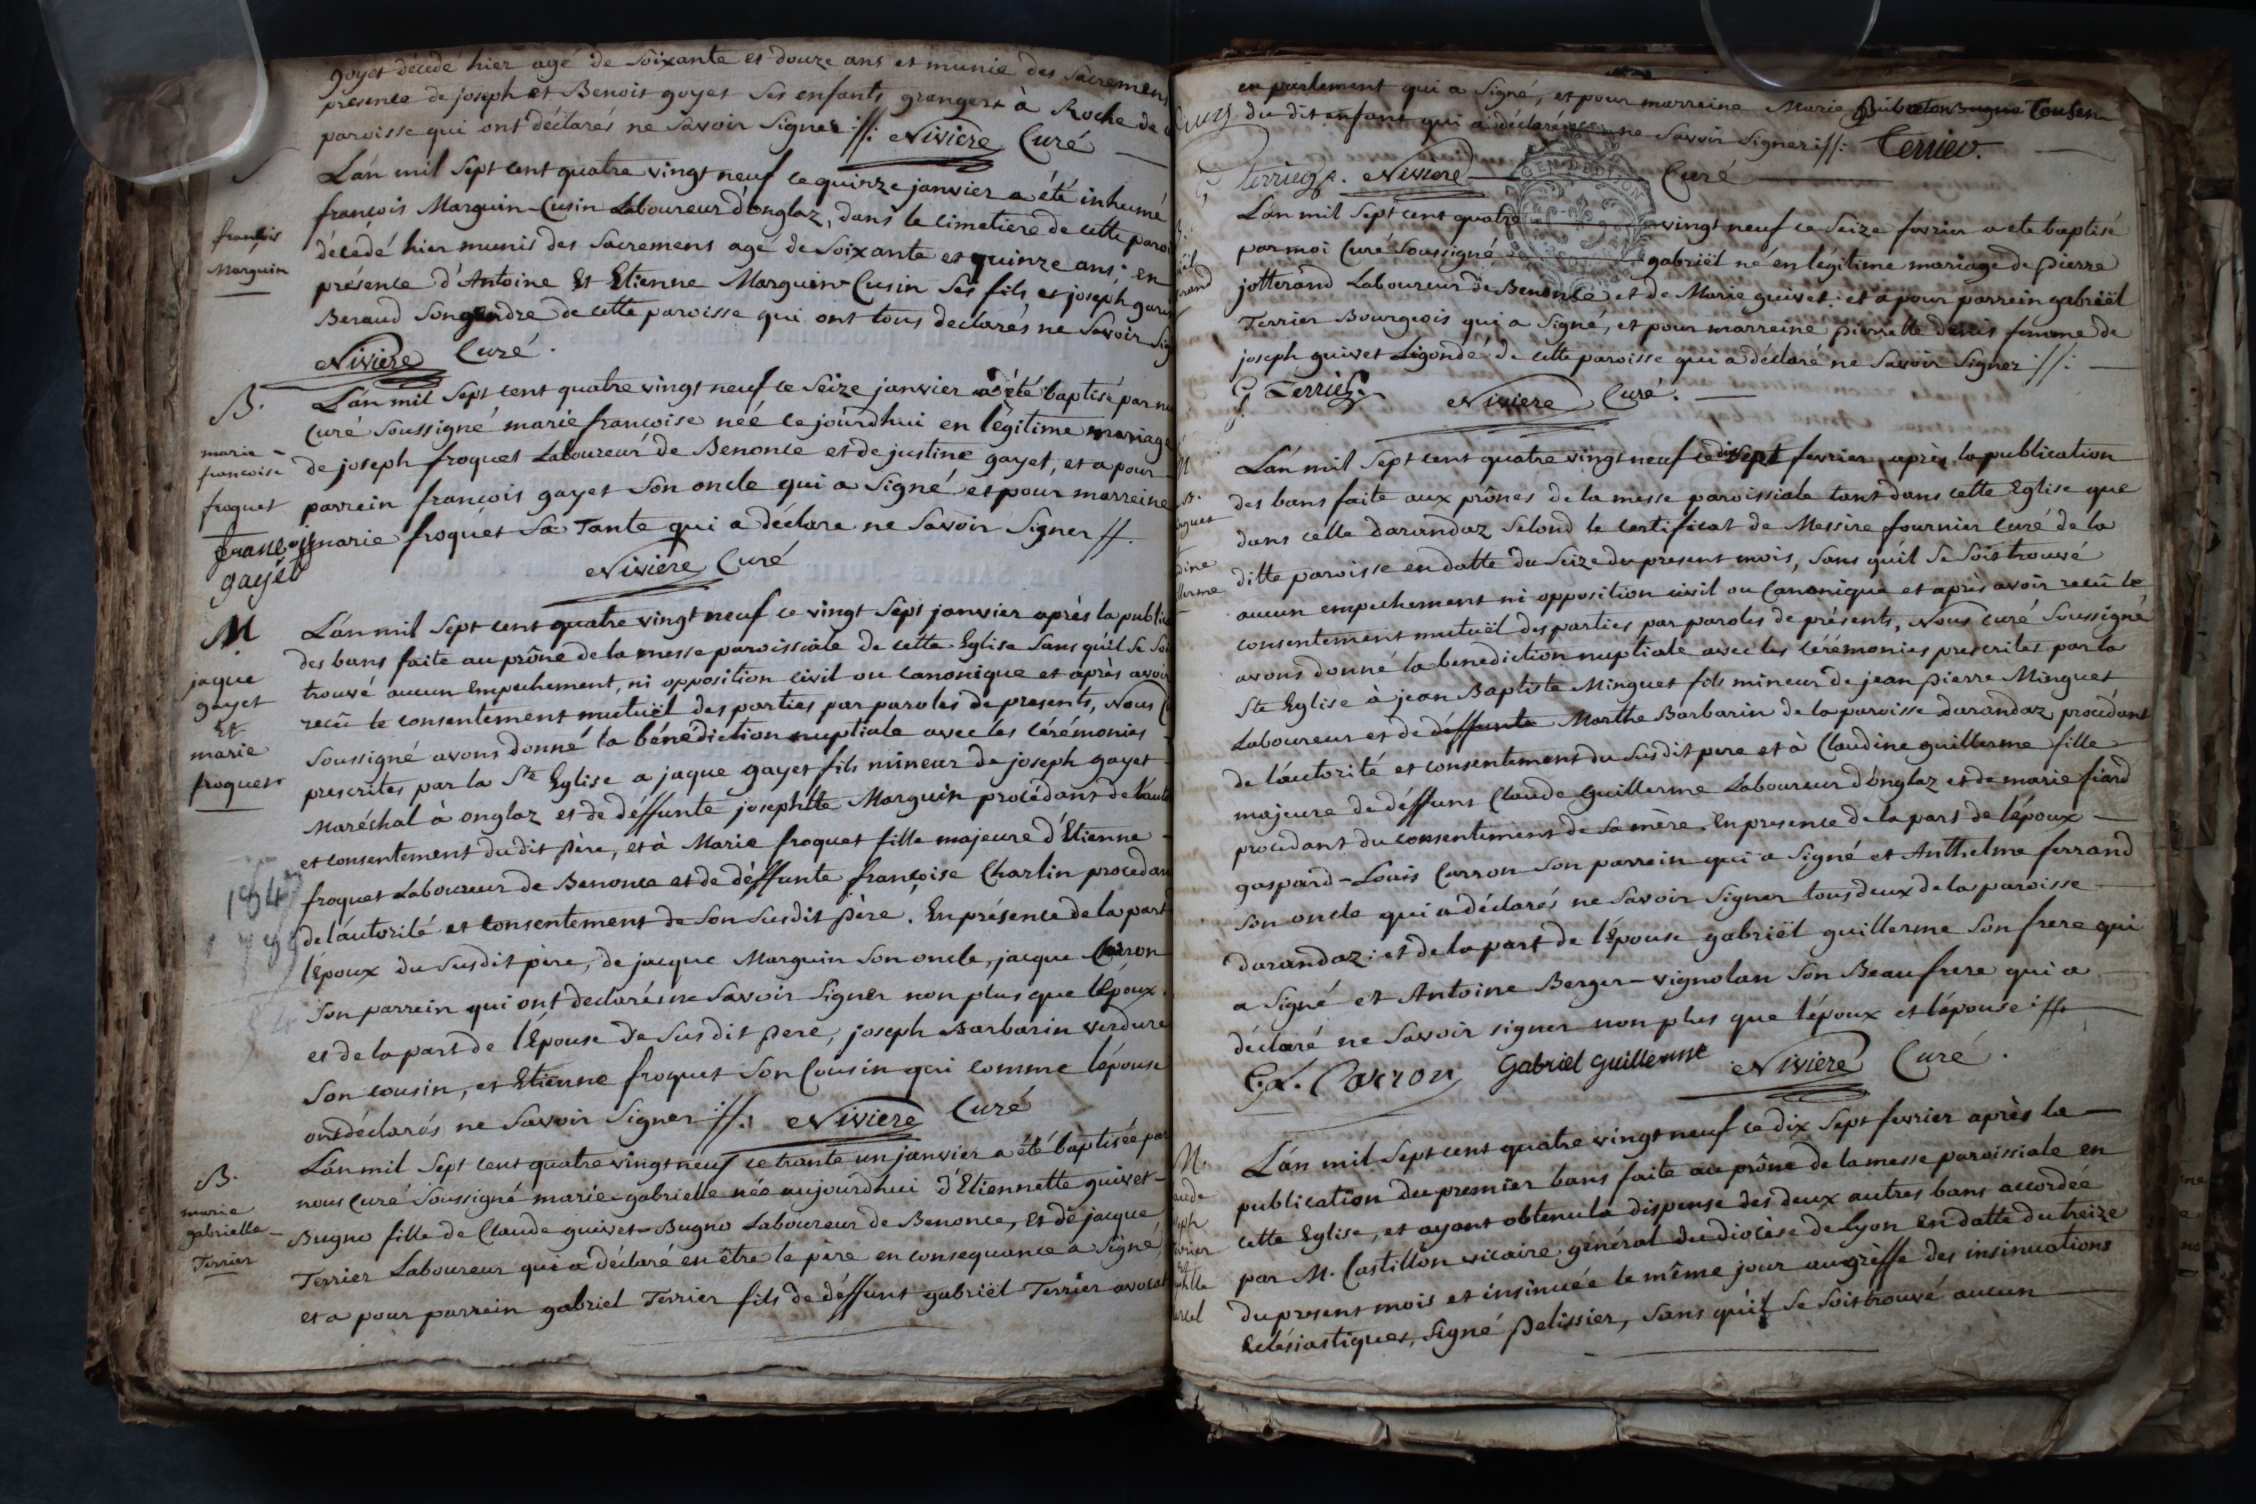 goyet décédé hier agé de Soixante et douze ans et munie des Sacremens
presence de joseph et Benoit goyet Ses enfants grangers à Roche de
paroisse qui ont déclarés ne Savoir Signer //: Niviere Curé
L'an mil Sept cent quatre vingt neuf ce quinze janvier a été inhumé
françois Marguin-Cusin Laboureur d'onglaz, dans le cimetiere de cette paroi
françois
Marguin
décédé hier munis des Sacremens agé de Soixante et quinze ans: en
présence d'Antoine et Etienne Marguin-Cusin Ses fils et joseph
Beraud Son gendre de cette paroisse qui ont tous declarés ne Savoir Sig
Niviere Curé.
B.
marie-
francoise
froquet
L'an mil Sept cent quatre vingt neuf ce Seize janvier a été baptisé par
Curé Soussigné marie françoise néé ce jourdhui en légitime mariage
de joseph froquet Laboureur de Benonce et de justine gayet, et a pour
parrein francois gayet Son oncle qui a Signé et pour marreine
marie froquet Sa Tante qui a déclare ne Savoir Signer //.
françois
gayet
Niviere Curé
M.
jaque
gayet
Et
marie
froquet
L'an mil Sept cent quatre vingt neuf ce vingt Sept janvier après la publi
des bans faite au prône de la messe paroissiale de cette Eglise Sans qu'il Se Soi
trouvé aucun Empechement, ni opposition civil ou canonique et après avoir
reçû le consentement mutuël des parties par paroles de presents, Nous C
Soussigné avons donné la bénédiction nuptiale avec les cérémonies
prescrites par la Ste Eglise a jaque gayet fils mineur de joseph gayet
Maréchal à onglaz et de déffunte josephtte Marguin procédant de l'aut
et consentement du dit père, et à Marie froquet fille majeure d'Etienne
froquet Laboureur de Benonce et de déffunte françoise Charlin procedan
de l'autorité et consentement de Son Susdit père. En présence de la part
l'époux du Susdit père, de jacque Marguin Son oncle, jacque Carron
Son parrein qui ont declarés ne Savoir Signer non plus que l'époux
et de la part de l'Épouse de Susdit pere, joseph Barbarin verdure
Son cousin, et Etienne froquet Son Cousin qui comme l'épouse
ont déclarés ne Savoir Signer //. Niviere Curé
B.
marie
gabrielle
Terrier
L'an mil Sept cent quatre vingt neuf ce trante un janvier a été baptisée par
nous Curé Soussigné marie-gabrielle née aujourdhui d'Etiennette guivet-
Bugno fille de Claude guivet-Bugno Laboureur de Benonce, et de jacque
Terrier Laboureur qui a déclaré en être le père en consequance a Signé,
et a pour parrein gabriel Terrier fils de déffunt gabriël Terrier avocat
en parlement qui a Signé, et pour marreine Marie
du dit enfant qui a déclaré ne Savoir Signer //: Terrier.
G Terrier. Niviere Curé
L'an mil Sept cent quatre vingt neuf ce Seize fevrier a ete baptisé
par moi Curé Soussigné gabriël né en légitime mariage de pierre
jotterand Laboureur de Benonce et de Marie guivet: et a pour parrein gabriël
Terrier Bourgeois qui a Signé, et pour marreine pierrette femme de
joseph guivet Ligonde de cette paroisse qui a déclaré ne Savoir Signer //:
G Terrier Niviere Curé.
L'an mil Sept cent quatre vingt neuf ce dix Sept fevrier, après la publication
des bans faite aux prônes de la messe paroissiale tant dans cette Eglise que
dans celle darandaz Selond le Certificat de Messire fournier Curé de la
ditte paroisse en datte du Seize du present mois, Sans qu'il Se Soit trouvé
aucun empechement ni opposition civil ou Canonique et après avoir reçû le
consentement mutuël des parties par paroles de présents, Nous Curé Soussigné
avons donné la benediction nuptiale avec les cérémonies prescrites par la
Ste Eglise à jean Baptiste Minguet fils mineur de jean pierre Minguet
Laboureur et de déffunte Marthe Barbarin de la paroisse darandaz procédant
de l'autorité et consentement du Susdit pere et à Claudine guillerme fille
majeure de déffunt Claude Guillerme Laboureur d'onglaz et de marie fiard
procedant du consentement de Sa mère. En presence de la part de l'époux
gaspard-Louis Carron Son parrein qui a Signé et Anthelme ferrand
Son oncle qui a déclarés ne Savoir Signer tous deux de la paroisse
darandaz: et de la part de l'épouse gabriël guillerme Son frere qui
a Signé et Antoine Berger-vignolan Son Beaufrere qui a
déclaré ne Savoir signer non plus que l'époux et l'épouse //.
G.L. Carron Gabriel Guillerme Niviere Curé.
M.
L'an mil Sept cent quatre vingt neuf ce dix Sept fevrier après la
publication du premier bans faite au prône de la messe paroissiale en
cette Eglise, et ayant obtenu la dispense des deux autres bans accordée
par M. Castillon vicaire général du diocèse de Lyon en datte du treize
du present mois et insinuée le même jour au grèffe des insinuations
Eclésiastiques, Signé pelissier, Sans qu'il Se Soit trouvé aucun